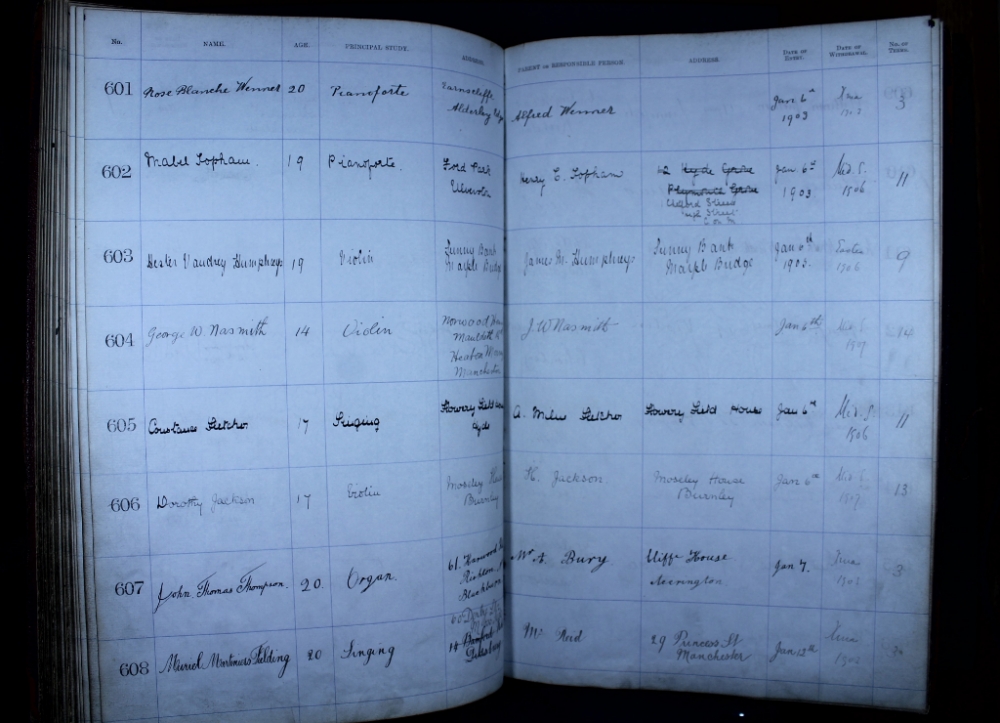 No. NAME. AGE. PRINCIPAL STUDY. ADDRESS. PARENT OR RESPONSIBLE PERSON. ADDRESS. DATE OF ENTRY. DATE OF WITHDRAWAL. No. OF TERMS.
601 Rose Blanche Wenner 20 Pianoforte Earnscliffe Alfred Wenner Jan 6th Xmas 3
Alderley Edge 1903
602 Mabel Topham. 19 Pianoforte. Ford Park Henry C. Topham 42 Hyde Grove Jan 6th Mid. S. 11
Ulverston Plymouth Grove 1903 1906
603 Hester Vaudrey Humphreys 19 Violin Sunny Bank James M. Humphreys Sunny Bank Jan 6th Easter 9
Marple Bridge Marple Bridge 1903. 1906
604 George W. Nasmith 14 Violin Norwood J. W Nasmith Jan 6th Mid S. 14
Mauldeth Rd
Heaton
Manchester
605 Constance Fletcher 17 Singing Flowery Field A. Milne Fletcher Flowery Field House Jan 6th Mid. S. 11
Hyde 1906
606 Dorothy Jackson 17 Violin Moseley House H. Jackson. Moseley House Jan 6th Mid S. 13
Burnley Burnley
607 John Thomas Thompson. 20. Organ. 61. Harwood Mr A. Bury Cliffe House Jan 7. Xmas 3
Rishton Accrington
Blackburn
608 Muriel Mortimer Fielding 20 Singing Mr Reid 29 Princess St Jan 12th Xmas
Manchester